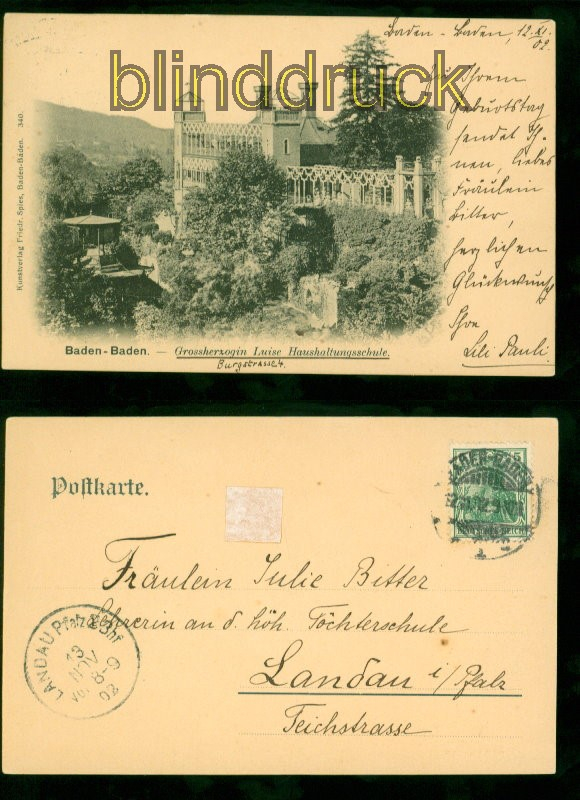 blinddruck
Baden-Baden, 12. XI.
02.
Zu Ihrem
Geburtstag
sendet Ih-
nen, liebes
Fräulein
Bitter,
herzlichen
Glückwunsch
Ihre
Lili Pauli.
Kunstverlag Friedr. Spies, Baden-Baden. 340.
Baden-Baden. — Grossherzogin Luise Haushaltungsschule.
Burgstrasse 4.
Postkarte.
BADEN-BADEN
5
Fräulein Julie Bitter
Lehrerin an d. höh. Töchterschule
Landau i/Pfalz
Teichstrasse
LANDAU Pfalz
13
NOV
8-9
02